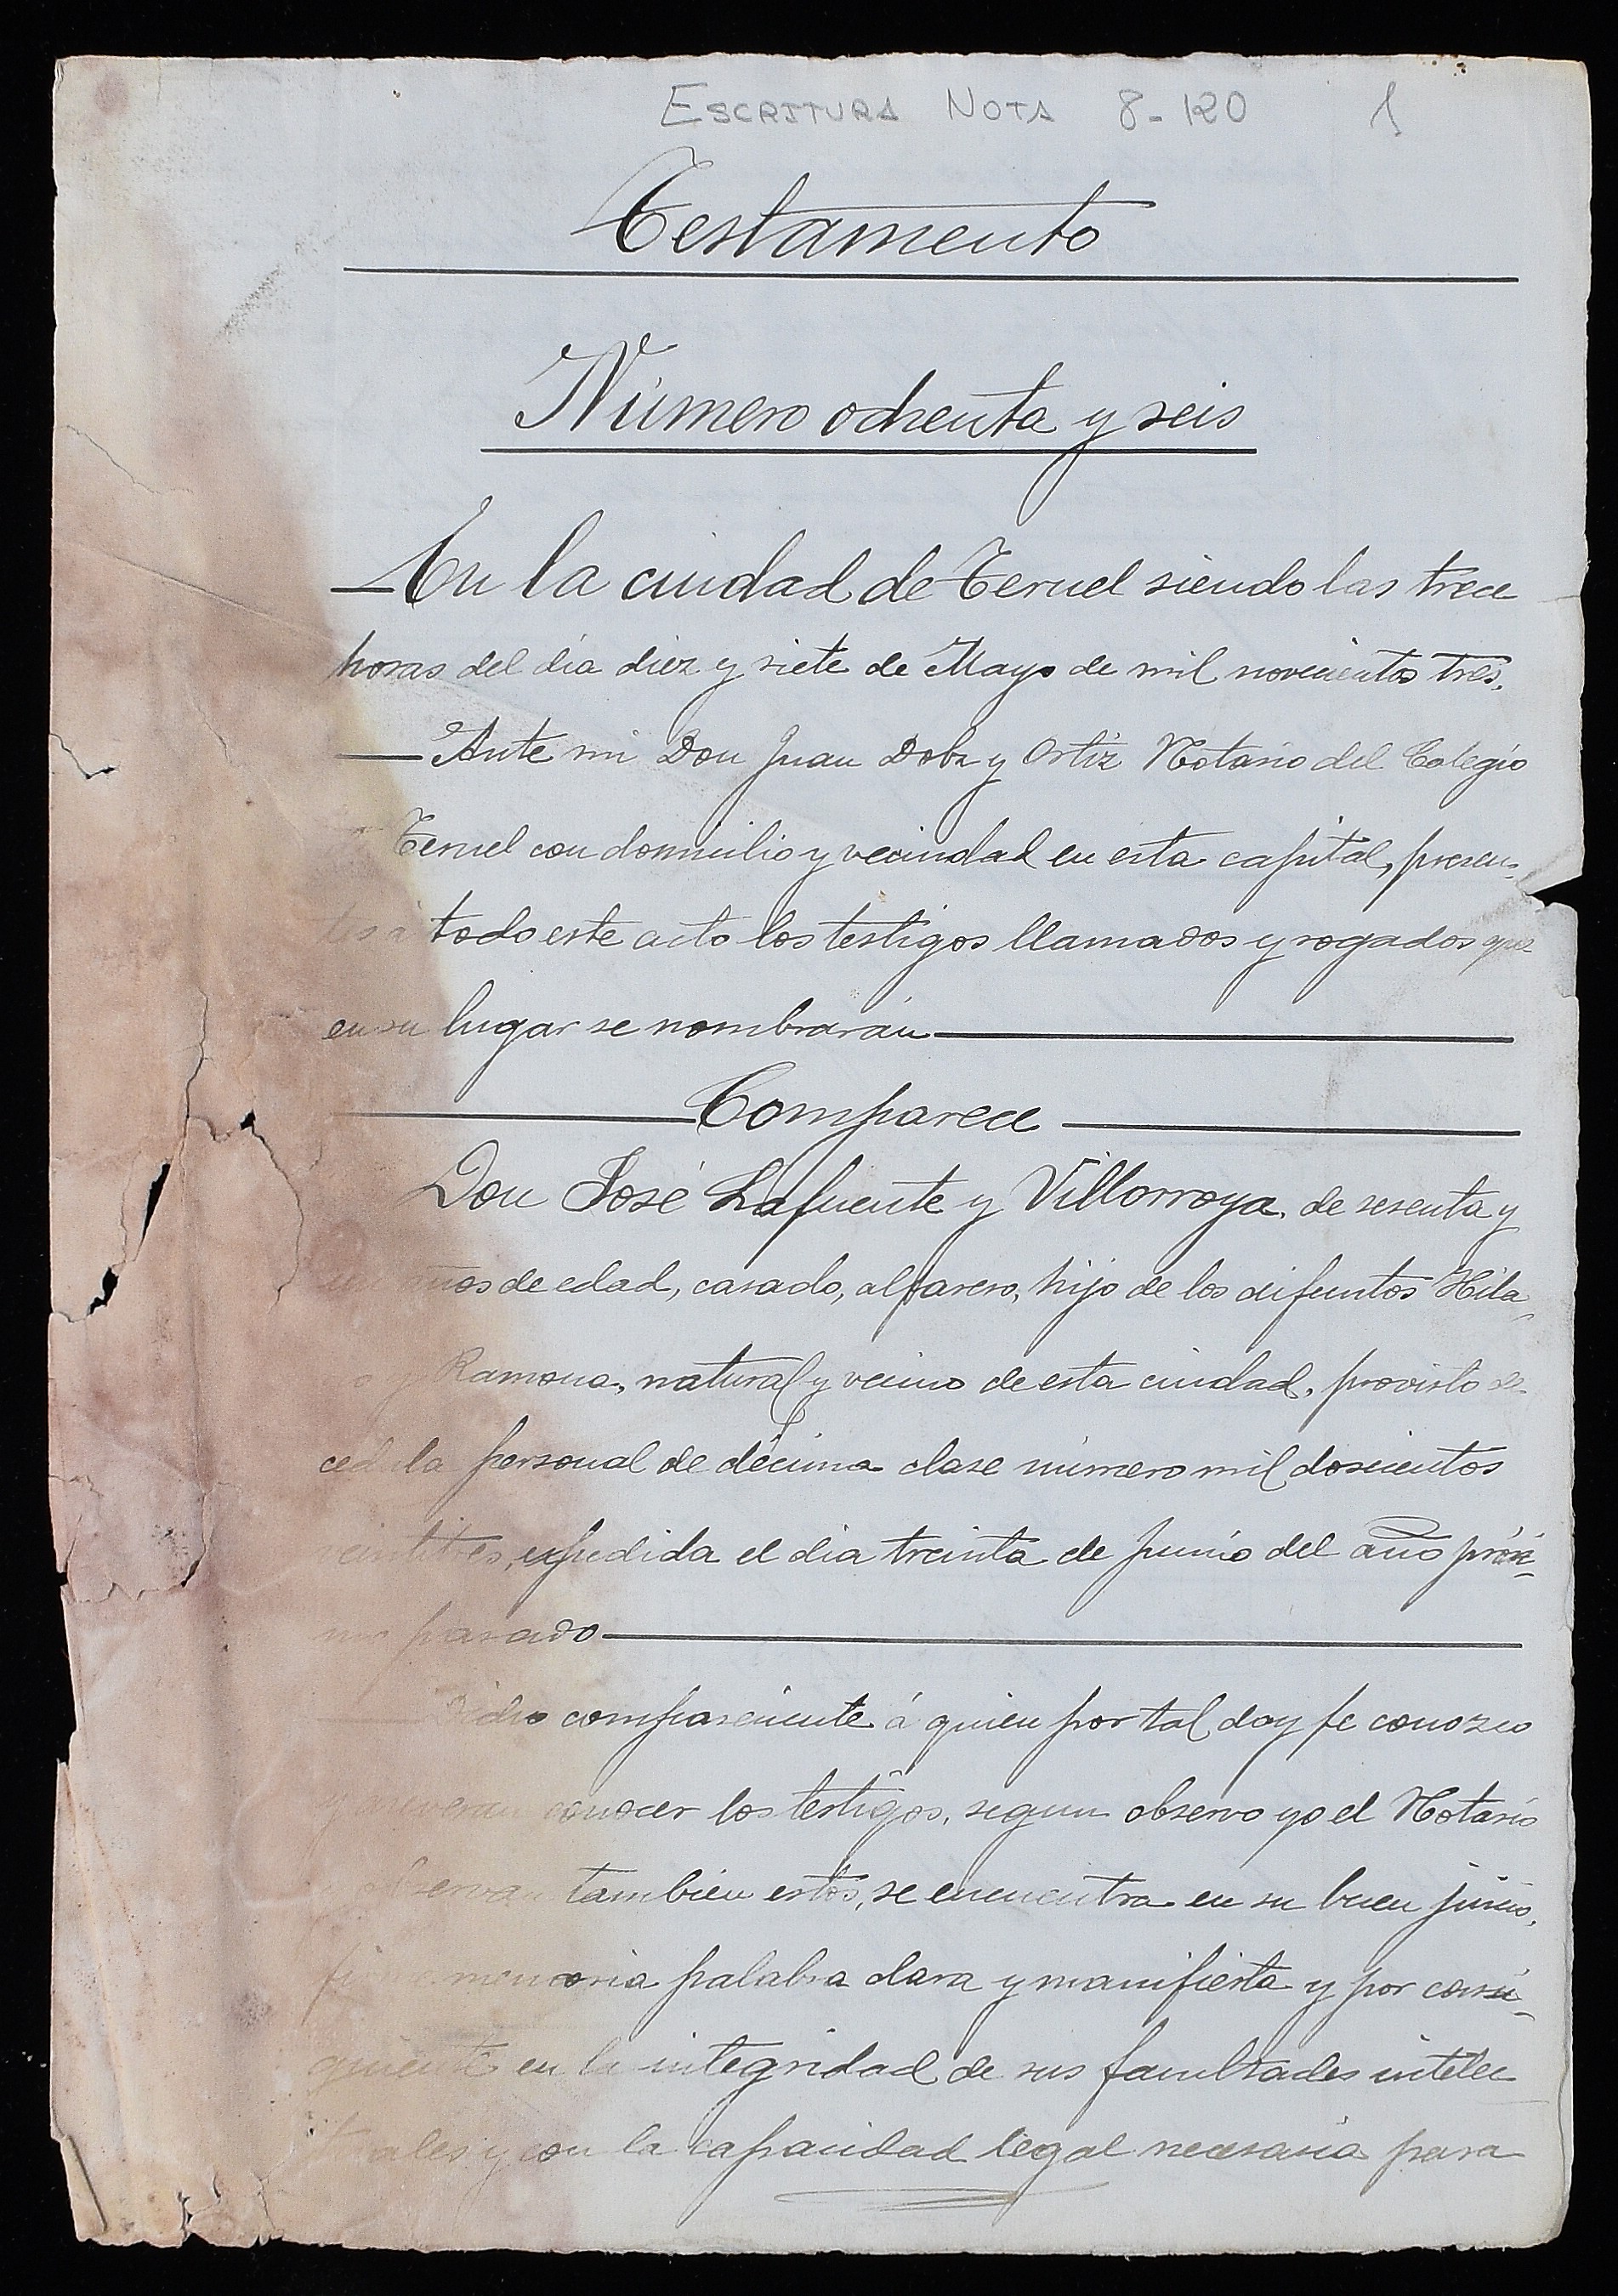 ESCRITURA NOTA 8-120 1
Testamento
Número ochenta y seis
En la ciudad de Teruel siendo las trece
horas del dia diez y siete de Mayo de mil novecientos tres.
Ante mi Don Juan Dobz y Ortiz Notario del Colegio
Teruel con domicilio y vecindad en esta capital, presen-
tes á todo este acto los testigos llamados y rogados que
en su lugar se nombrarán
Comparece
Don José Lafuente y Villorroya, de sesenta y
años de edad, casado, alfarero, hijo de los difuntos Hila-
o y Ramona, natural y vecino de esta ciudad, provisto de
cedula personal de décima clase número mil doscientos
expedida el dia treinta de Junio del año próxi-
mo pasado
Dicho compareciente á quien por tal doy fe conozco
y aseveran conocer los testigos, segun observo yo el Notario
observan tambien estos, se encuentra en su buen juicio,
firme memoria palabra clara y manifiesta y por consi-
guiente en la integridad de sus facultades intelec
tuales y con la capacidad legal necesaria para